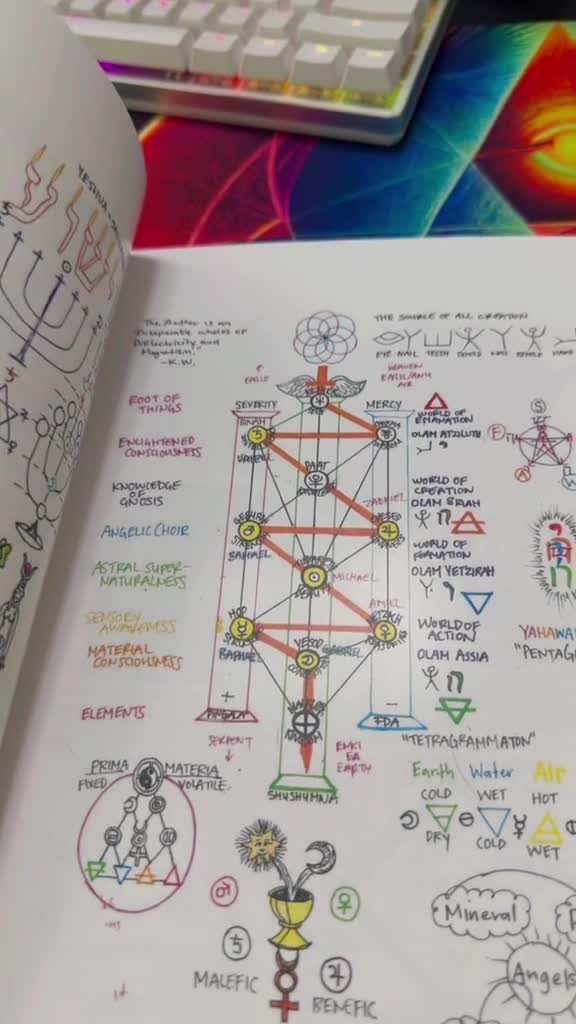 YESHUA
"The Aether is an
Inseparable whole of
Dielectricity and
Magnetism."
-K.W.
THE SOURCE OF ALL CREATION
EYE NAIL TEETH BEHOLD NAIL BEHOLD HAND
↑
EAGLE
HEAVEN
AIR
KETHER
ROOT OF
THINGS
SEVERITY
MERCY
WORLD OF
EMANATION
OLAM ATZILUTH
BINAH
URIEL
ENLIGHTENED
CONSCIOUSNESS
DAAT
KNOWLEDGE
OF
GNOSIS
ZADKIEL
WORLD OF
CREATION
OLAM BRIAH
ANGELIC CHOIR
CHESED
RAPHAEL
WORLD OF
FORMATION
OLAM YETZIRAH
ASTRAL SUPER-
NATURALNESS
MICHAEL
BEAUTY
SENSORY
AWARENESS
HOD
WORLD OF
ACTION
MATERIAL
CONSCIOUSNESS
RAPHAEL
YESOD
GABRIEL
OLAM ASSIA
ELEMENTS
+
PINGALA
-
IDA
"TETRAGRAMMATON"
SERPENT
↓
ENKI
EA
EARTH
SHUSHUMNA
S
E
A
W
YAHAWA
"PENTAG
PRIMA MATERIA
FIXED VOLATILE
Earth Water Air
COLD WET HOT
DRY COLD WET
MALEFIC
BENEFIC
Mineral
Angels